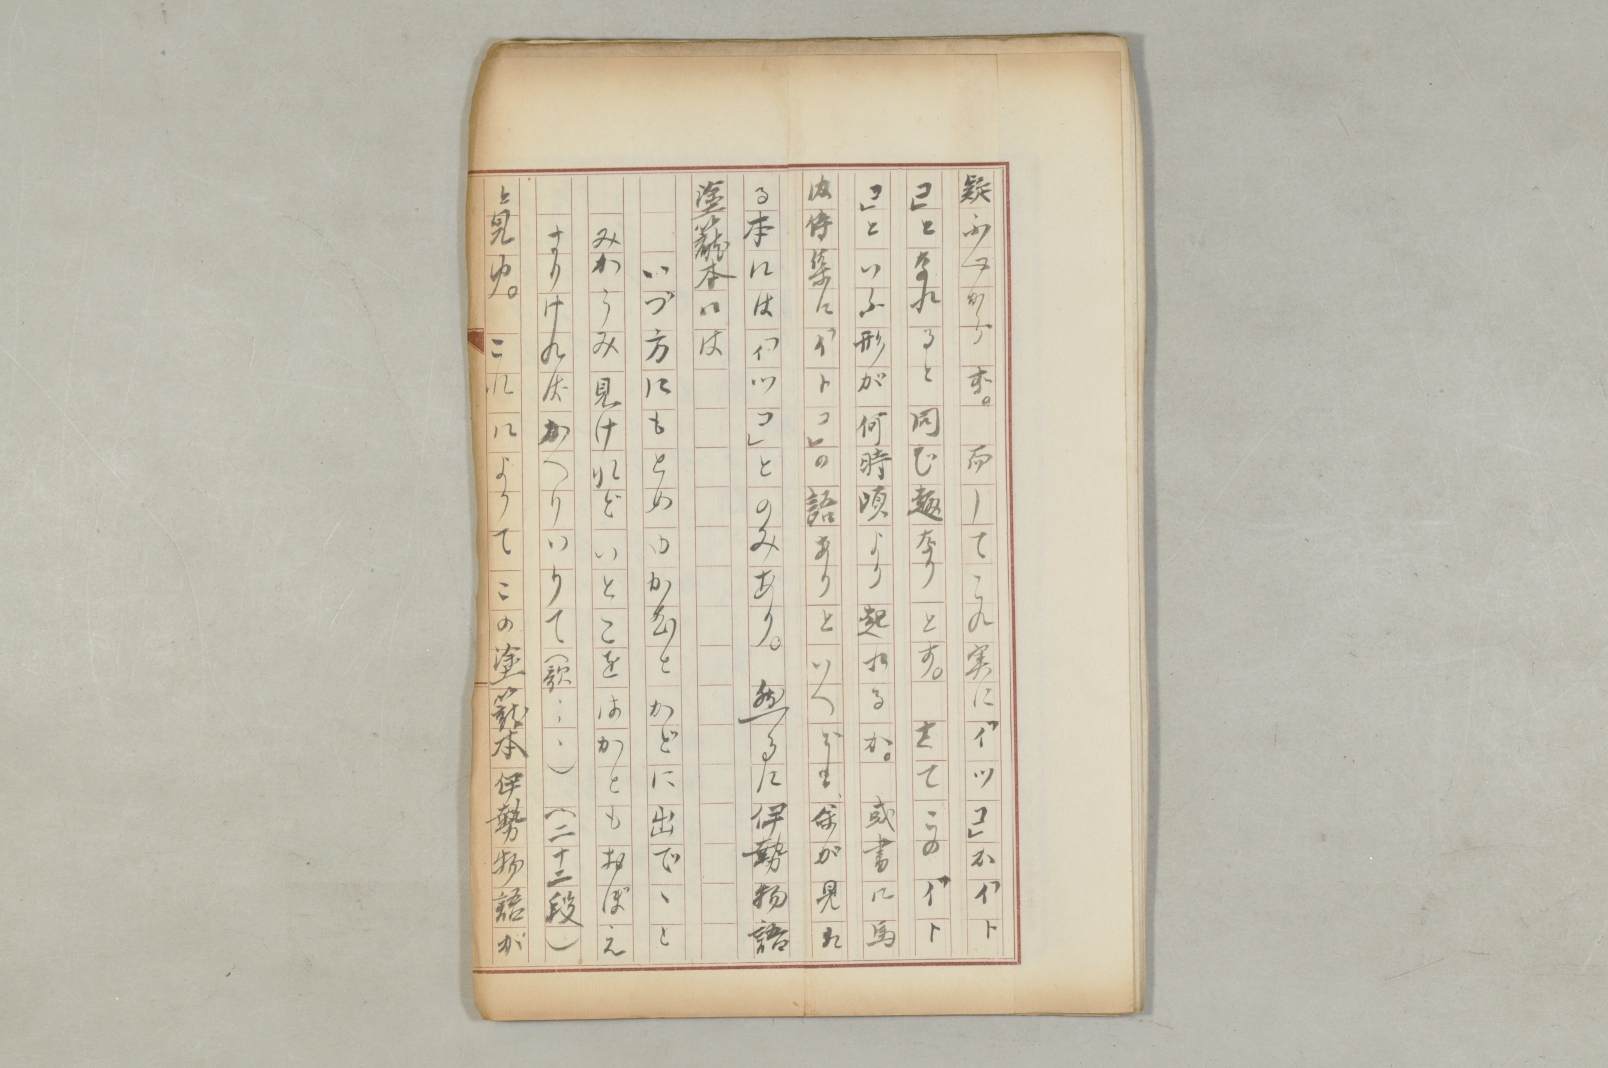 疑ふべからず。而してこれ実に「イツコ」が「イト
コ」となれると同じ趣なりとす。さてこの「イト
コ」といふ形が何時頃より起れるか。或書に馬
内侍集に「イトコ」の語ありといへども、余が見た
る本には「イツコ」とのみあり。然るに伊勢物語
塗籠本には
いづ方にもとめゆかむとかどに出でゝと
みかうみ見けれどいとこをはかともおぼえ
ざりければかへりいりて(歌……)(二十二段)
と見ゆ。これによりてこの塗籠本伊勢物語が